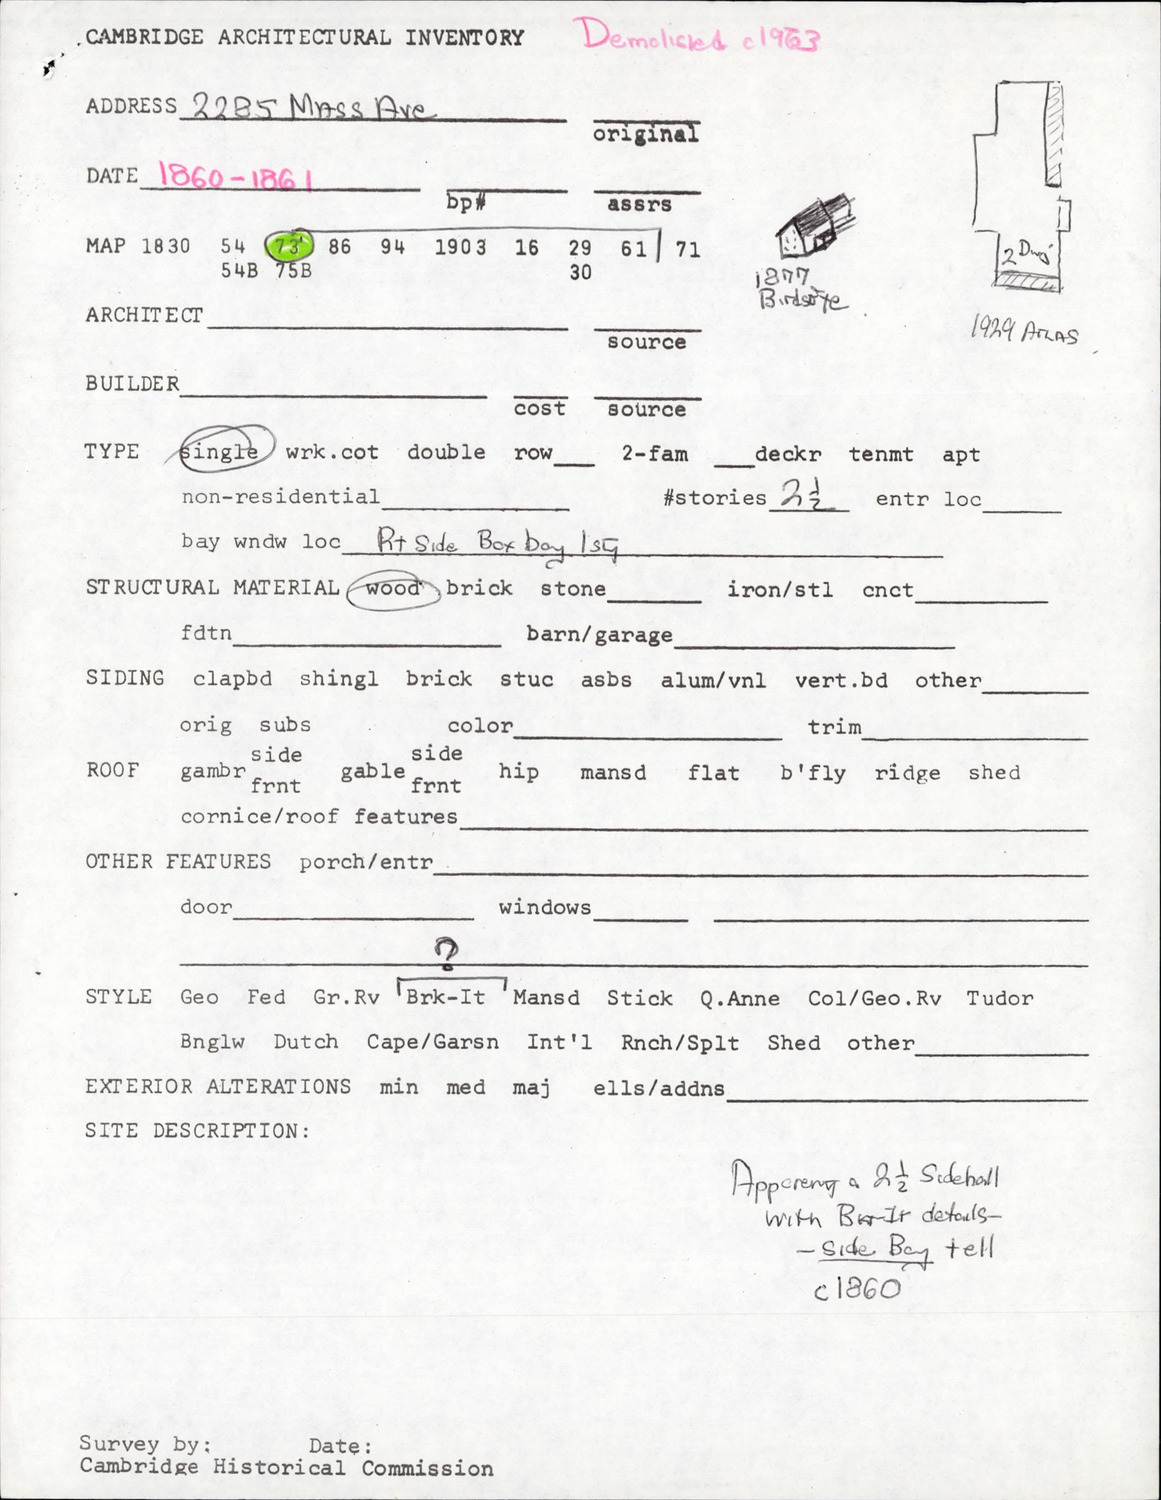 CAMBRIDGE ARCHITECTURAL INVENTORY Demolished c1963
ADDRESS 2285 Mass Ave
original
DATE 1860-1861
bp# assrs
MAP 1830 54 73' 86 94 1903 16 29 61 71
54B 75B 30
1877
Birdseye
2 Dwgs
1929 ATLAS
ARCHITECT
source
BUILDER
cost source
TYPE single wrk.cot double row 2-fam deckr tenmt apt
non-residential #stories 2½ entr loc
bay wndw loc Rt Side Box bay 1st
STRUCTURAL MATERIAL wood brick stone iron/stl cnct
fdtn barn/garage
SIDING clapbd shingl brick stuc asbs alum/vnl vert.bd other
orig subs color trim
side side
ROOF gambr gable hip mansd flat b'fly ridge shed
frnt frnt
cornice/roof features
OTHER FEATURES porch/entr
door windows
?
STYLE Geo Fed Gr.Rv Brk-It Mansd Stick Q.Anne Col/Geo.Rv Tudor
Bnglw Dutch Cape/Garsn Int'l Rnch/Splt Shed other
EXTERIOR ALTERATIONS min med maj ells/addns
SITE DESCRIPTION:
a 2½ Sidehall
with Brk-It details-
- Side Bay tell
c1860
Survey by: Date:
Cambridge Historical Commission